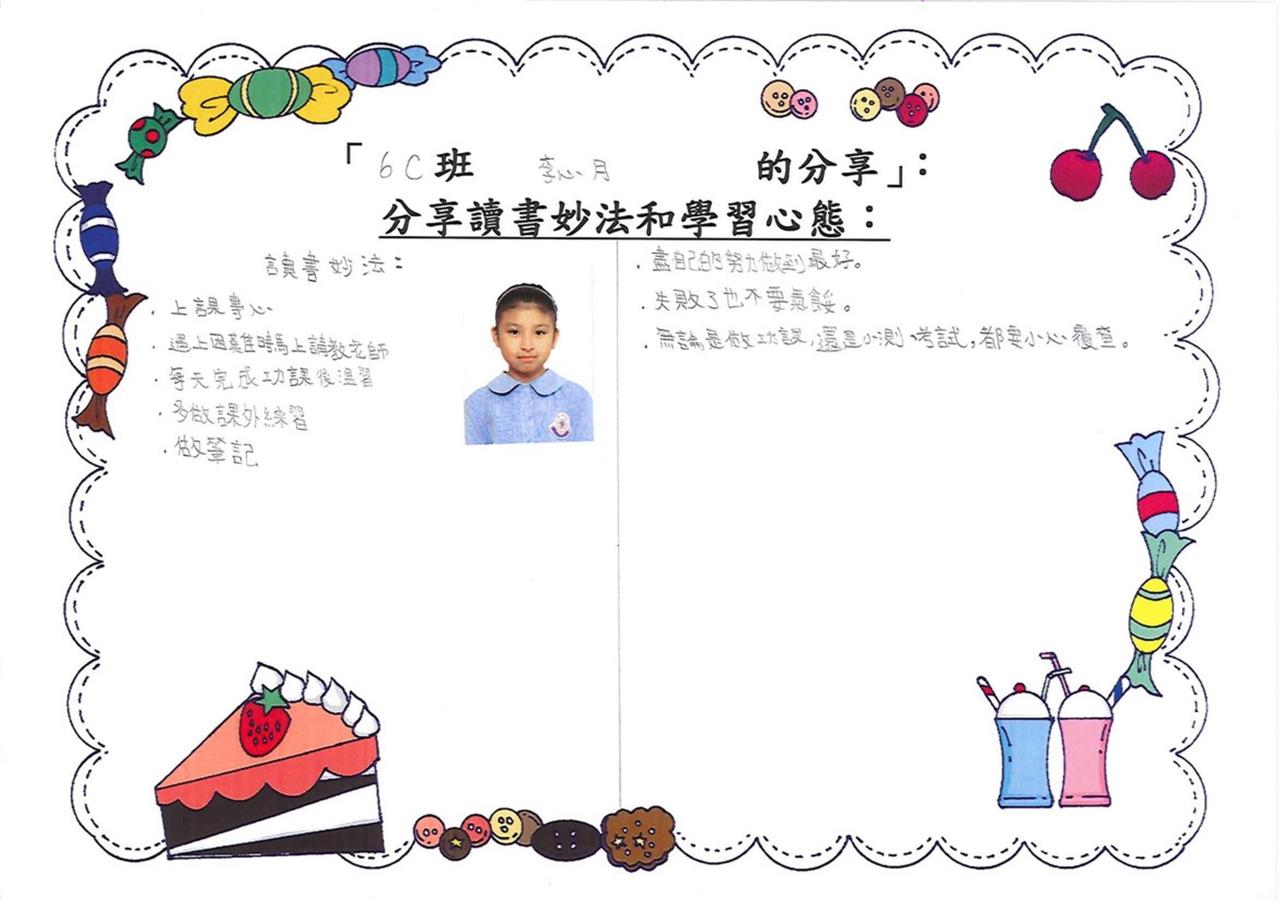 「 6C 班 李心月 的分享」：
分享讀書妙法和學習心態：
讀書妙法：
．上課專心
．遇上困難時馬上請教老師
．每天完成功課後溫習
．多做課外練習
．做筆記
．盡自己的努力做到最好。
．失敗了也不要氣餒。
．無論是做功課，還是小測、考試，都要小心覆查。